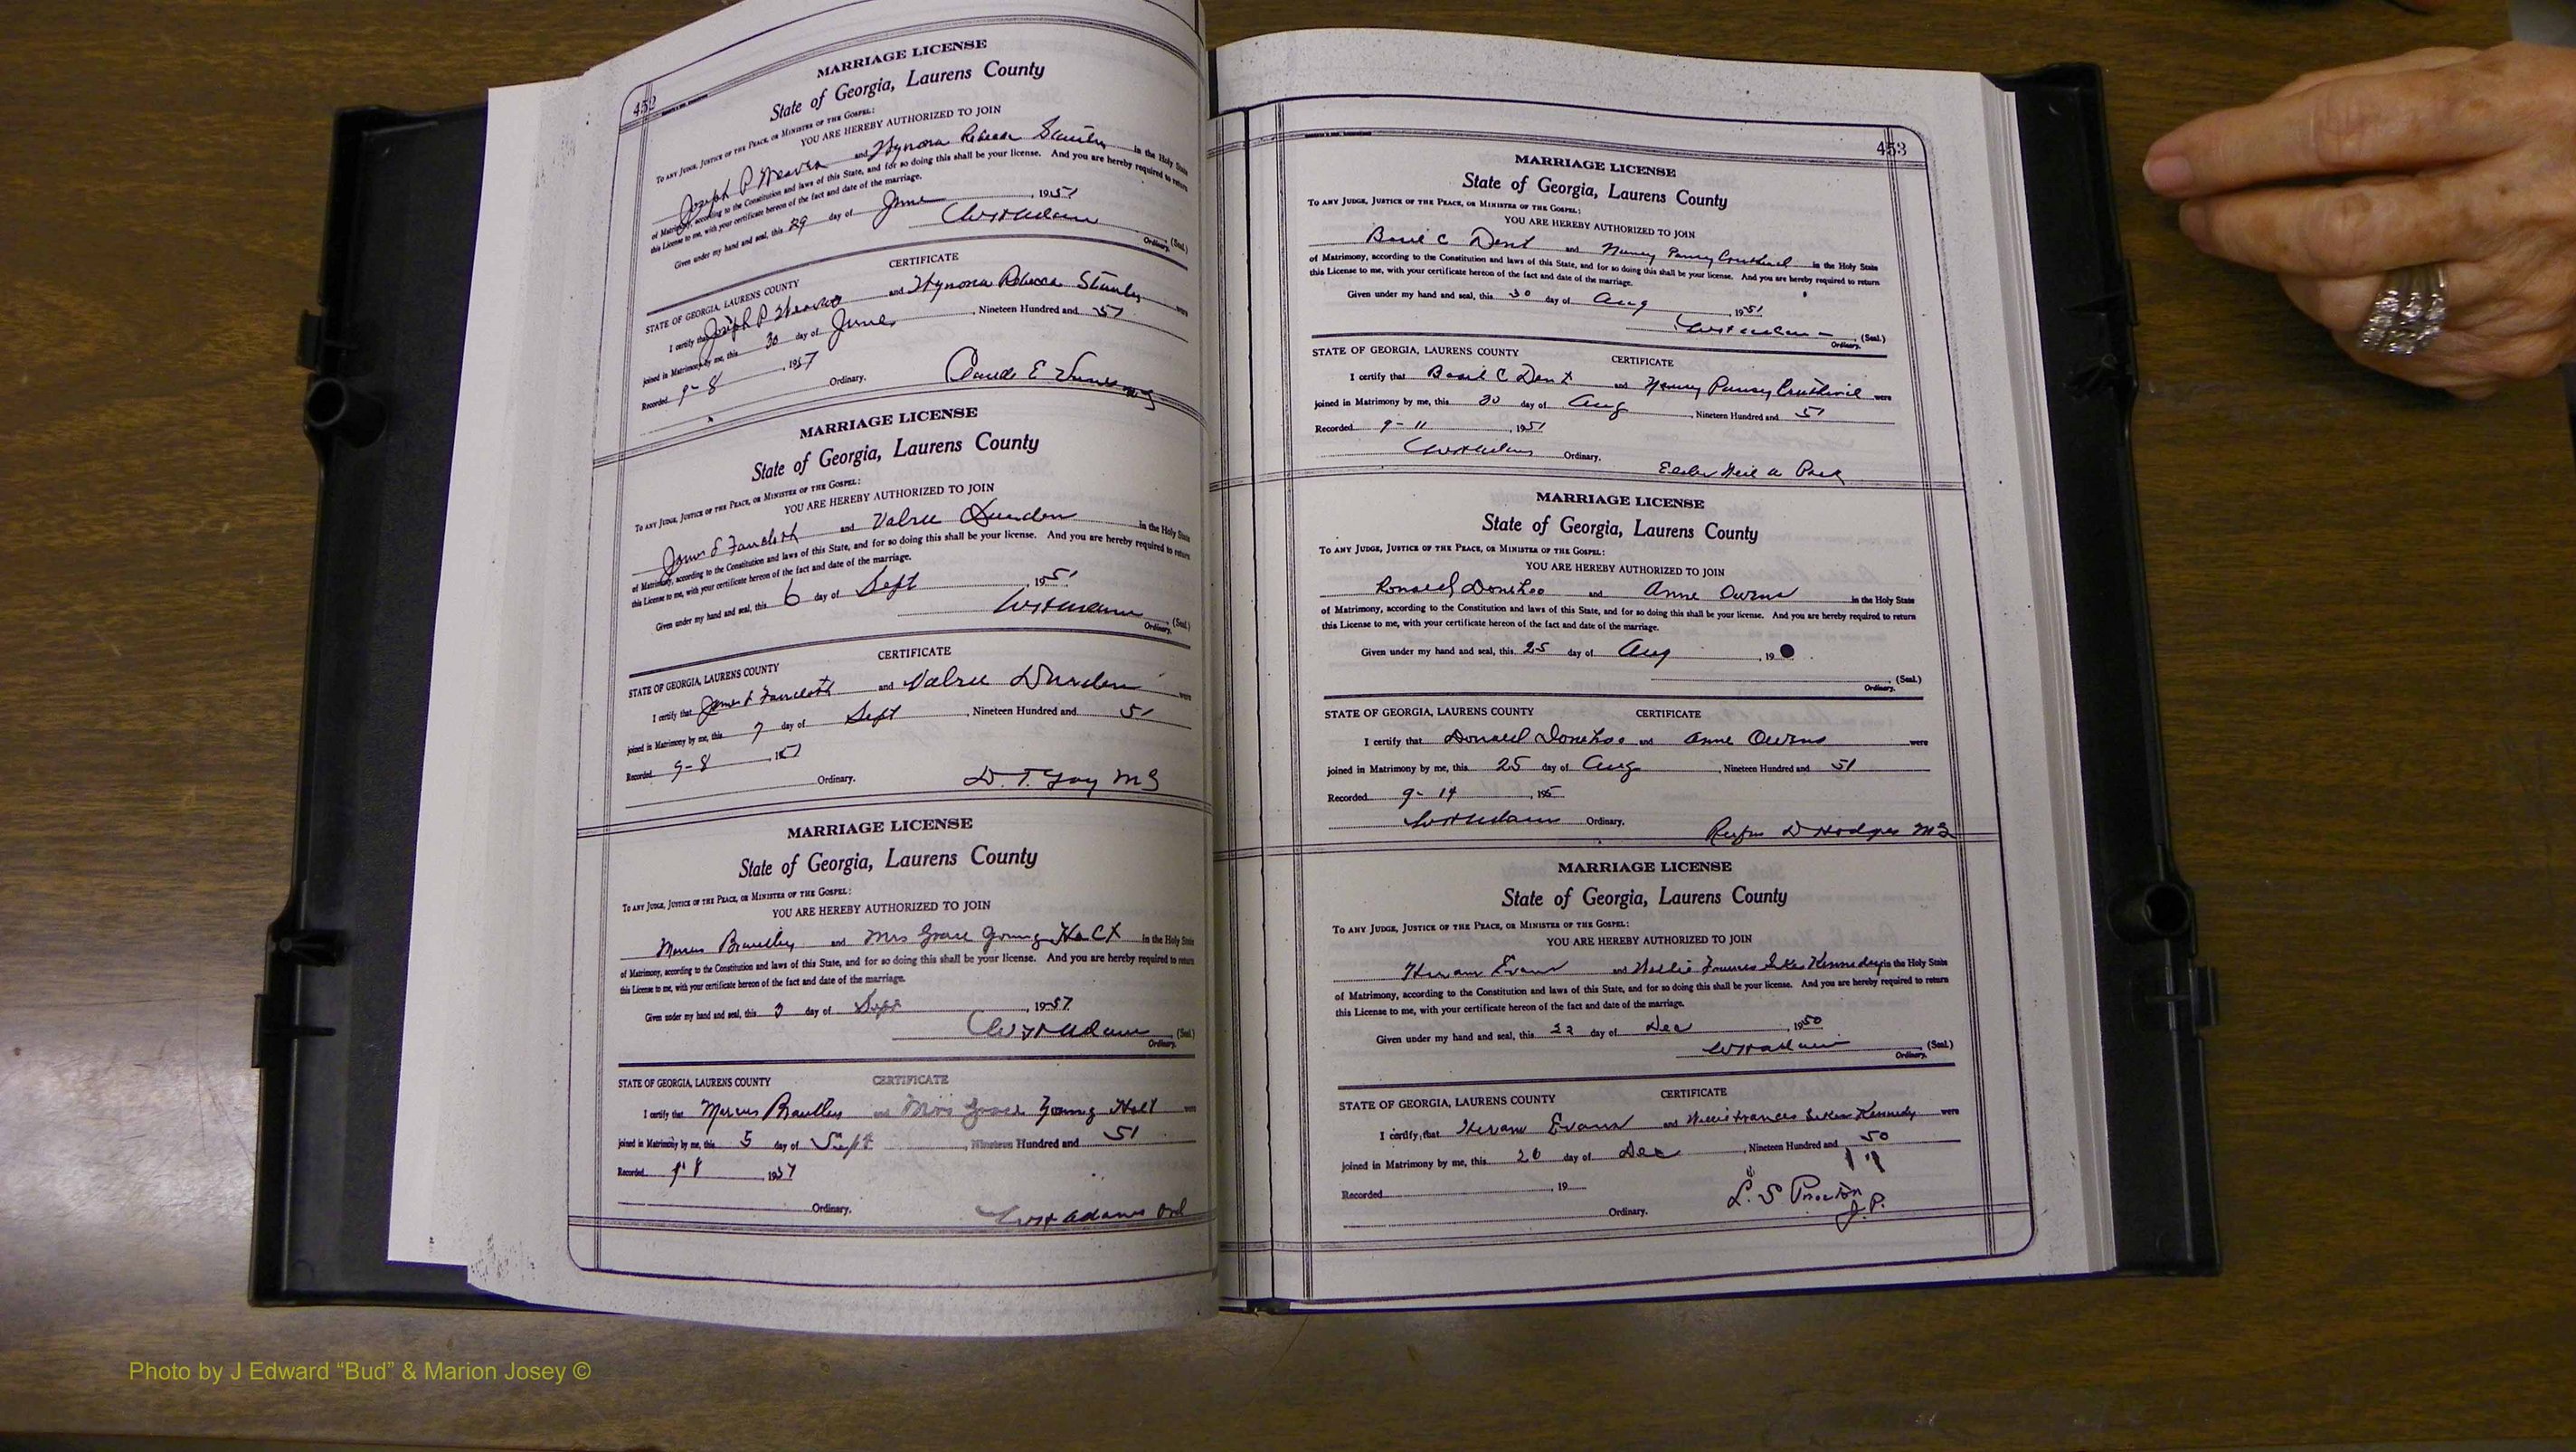 452
MARRIAGE LICENSE
State of Georgia, Laurens County
TO ANY JUDGE, JUSTICE OF THE PEACE, OR MINISTER OF THE GOSPEL:
YOU ARE HEREBY AUTHORIZED TO JOIN
Joseph P Weaver and Wynona Rebecca Stanley in the Holy State
of Matrimony, according to the Constitution and laws of this State, and for so doing this shall be your license. And you are hereby required to return
this License to me, with your certificate hereon of the fact and date of the marriage.
Given under my hand and seal, this 29 day of June, 1951
(Seal.)
Ordinary.
CERTIFICATE
STATE OF GEORGIA, LAURENS COUNTY
I certify that Joseph P Weaver and Wynona Rebecca Stanley were
joined in Matrimony by me, this 30 day of June, Nineteen Hundred and 51
Recorded 9-8, 1957
Ordinary. Claude E
MARRIAGE LICENSE
State of Georgia, Laurens County
TO ANY JUDGE, JUSTICE OF THE PEACE, OR MINISTER OF THE GOSPEL:
YOU ARE HEREBY AUTHORIZED TO JOIN
James Faircloth and Valree Durden in the Holy State
of Matrimony, according to the Constitution and laws of this State, and for so doing this shall be your license. And you are hereby required to return
this License to me, with your certificate hereon of the fact and date of the marriage.
Given under my hand and seal, this 6 day of Sept, 1951
(Seal.)
Ordinary.
CERTIFICATE
STATE OF GEORGIA, LAURENS COUNTY
I certify that James Faircloth and Valree Durden were
joined in Matrimony by me, this 7 day of Sept, Nineteen Hundred and 51
Recorded 9-8, 1951
Ordinary. D. T. Gay MG
MARRIAGE LICENSE
State of Georgia, Laurens County
TO ANY JUDGE, JUSTICE OF THE PEACE, OR MINISTER OF THE GOSPEL:
YOU ARE HEREBY AUTHORIZED TO JOIN
Marcus Brantley and Mrs Grace Young Holt in the Holy State
of Matrimony, according to the Constitution and laws of this State, and for so doing this shall be your license. And you are hereby required to return
this License to me, with your certificate hereon of the fact and date of the marriage.
Given under my hand and seal, this 3 day of Sept, 1957
W H Adams (Seal.)
Ordinary.
STATE OF GEORGIA, LAURENS COUNTY CERTIFICATE
I certify that Marcus Brantley and Mrs Grace Young Holt were
joined in Matrimony by me, this 5 day of Sept, Nineteen Hundred and 51
Recorded 9-8
Ordinary. W H Adams Ord
453
MARRIAGE LICENSE
State of Georgia, Laurens County
TO ANY JUDGE, JUSTICE OF THE PEACE, OR MINISTER OF THE GOSPEL:
YOU ARE HEREBY AUTHORIZED TO JOIN
Basil C Dent and Nancy Pansy in the Holy State
of Matrimony, according to the Constitution and laws of this State, and for so doing this shall be your license. And you are hereby required to return
this License to me, with your certificate hereon of the fact and date of the marriage.
Given under my hand and seal, this 30 day of Aug 1951
(Seal.)
Ordinary.
STATE OF GEORGIA, LAURENS COUNTY CERTIFICATE
I certify that Basil C Dent and Nancy Pansy were
joined in Matrimony by me, this 30 day of Aug, Nineteen Hundred and 51
Recorded 9-11, 1951
Ordinary.
MARRIAGE LICENSE
State of Georgia, Laurens County
TO ANY JUDGE, JUSTICE OF THE PEACE, OR MINISTER OF THE GOSPEL:
YOU ARE HEREBY AUTHORIZED TO JOIN
Ronald Donehoo and Anne Owens in the Holy State
of Matrimony, according to the Constitution and laws of this State, and for so doing this shall be your license. And you are hereby required to return
this License to me, with your certificate hereon of the fact and date of the marriage.
Given under my hand and seal, this 25 day of Aug, 19
(Seal.)
Ordinary.
STATE OF GEORGIA, LAURENS COUNTY CERTIFICATE
I certify that Donald Donehoo and Anne Owens were
joined in Matrimony by me, this 25 day of Aug, Nineteen Hundred and 51
Recorded 9-14, 195
Ordinary. Rufus D Hodges MG
MARRIAGE LICENSE
State of Georgia, Laurens County
TO ANY JUDGE, JUSTICE OF THE PEACE, OR MINISTER OF THE GOSPEL:
YOU ARE HEREBY AUTHORIZED TO JOIN
Hiram Evans and Nellie Frances Sikes Kennedy in the Holy State
of Matrimony, according to the Constitution and laws of this State, and for so doing this shall be your license. And you are hereby required to return
this License to me, with your certificate hereon of the fact and date of the marriage.
Given under my hand and seal, this 22 day of Dec, 1950
(Seal.)
Ordinary.
CERTIFICATE
STATE OF GEORGIA, LAURENS COUNTY
I certify that Hiram Evans and Frances Sikes Kennedy were
joined in Matrimony by me, this 26 day of Dec, Nineteen Hundred and 50
Recorded, 19
Ordinary. L. S Proctor
J. P.
Photo by J Edward “Bud” & Marion Josey ©